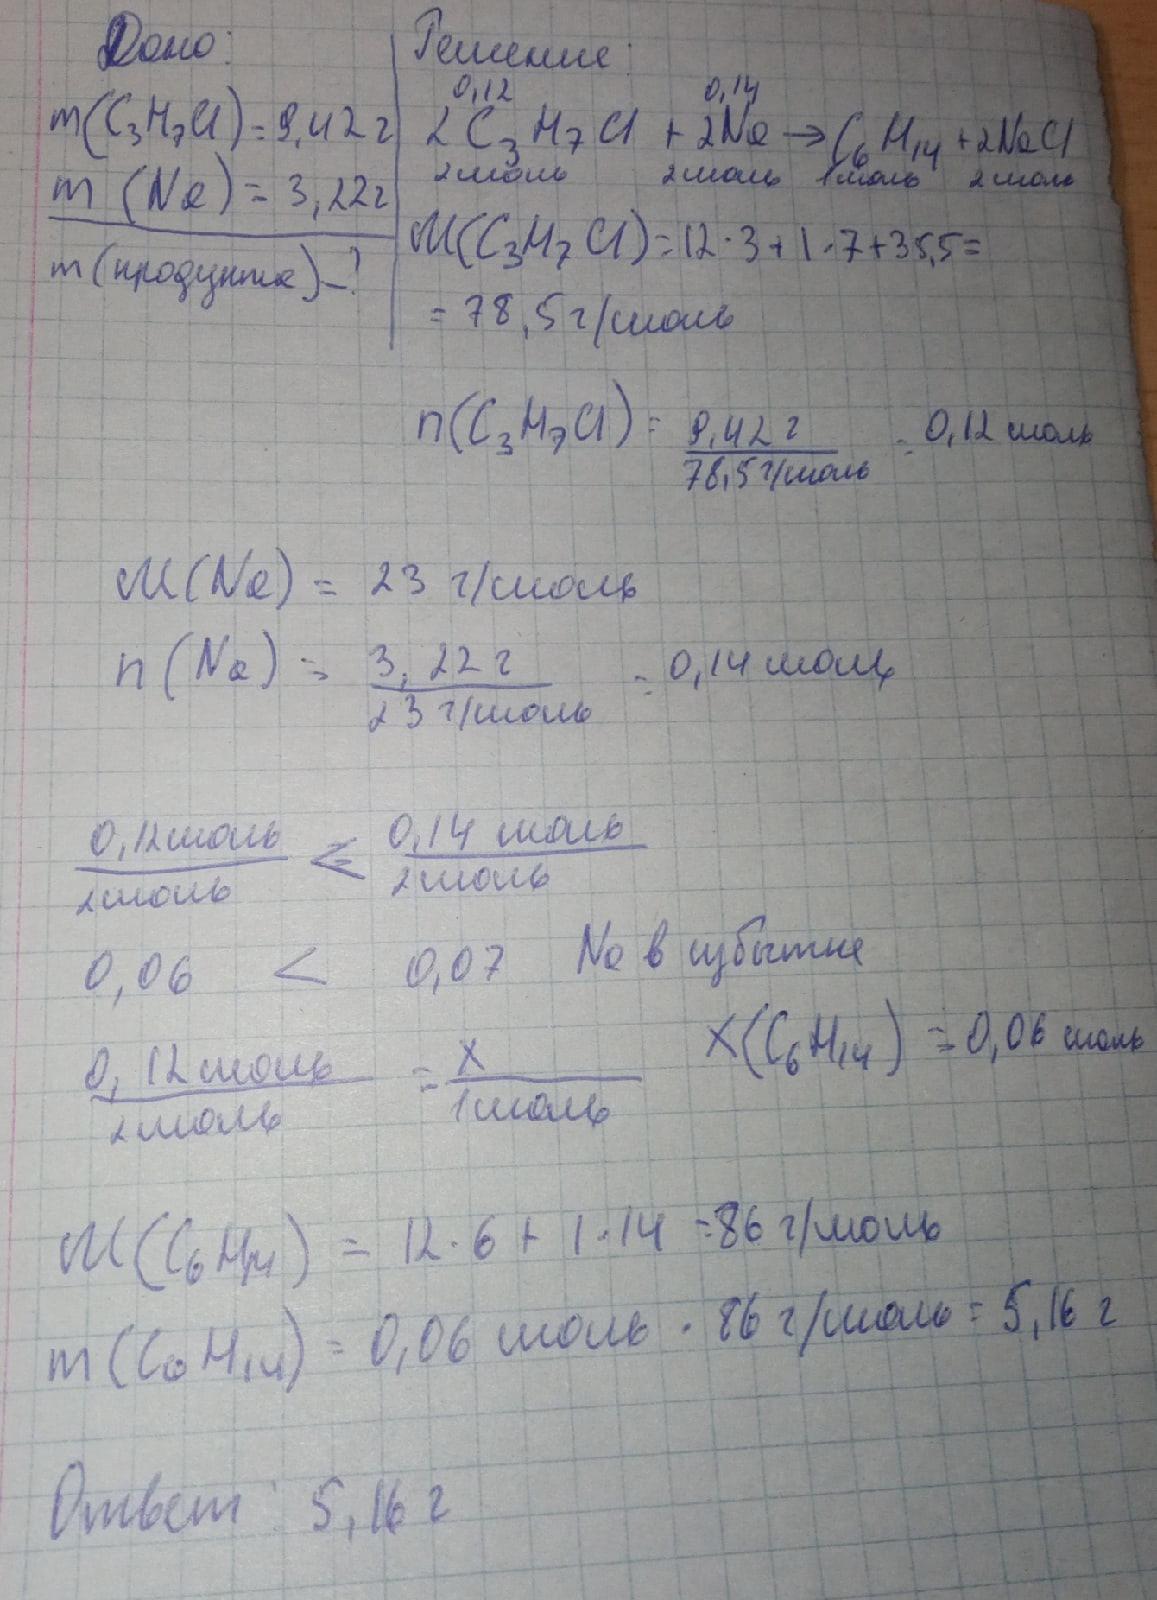 Дано:
m(C₃H₇Cl)=9,42г
m(Na)=3,22г
m(продукта)-?
Решение:
0,12 0,14
2C₃H₇Cl + 2Na → C₆H₁₄ + 2NaCl
2моль 2моль 1моль 2моль
M(C₃H₇Cl)=12·3+1·7+35,5=
=78,5г/моль
n(C₃H₇Cl)= 9,42г / 78,5г/моль = 0,12 моль
M(Na) = 23 г/моль
n(Na) = 3,22г / 23г/моль = 0,14 моль
0,12моль / 2моль < 0,14 моль / 2моль
0,06 < 0,07 Na в избытке
0,12моль / 2моль = X / 1моль X(C₆H₁₄) = 0,06 моль
M(C₆H₁₄) = 12·6+1·14 =86 г/моль
m(C₆H₁₄) = 0,06 моль · 86 г/моль = 5,16 г
Ответ: 5,16 г